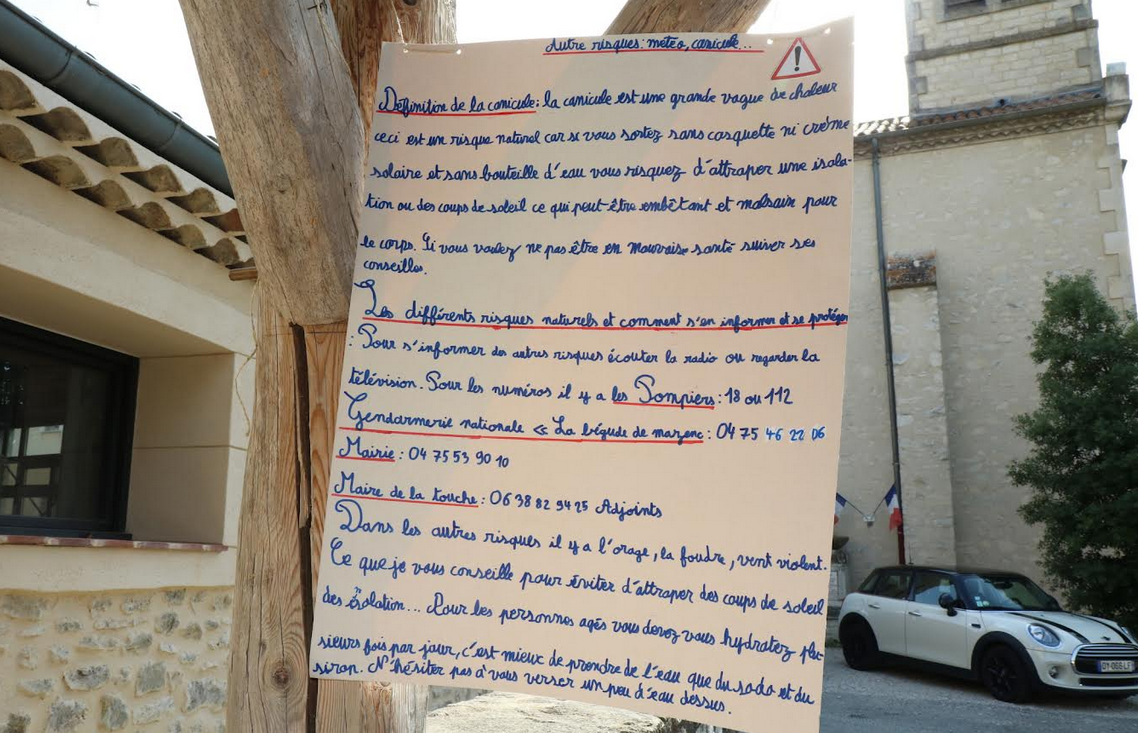 Autre risques: meteo, canicule...
Définition de la canicule: la canicule est une grande vague de chaleur
ceci est un risque naturel car si vous sortez sans casquette ni crème
solaire et sans bouteille d'eau vous risquez d'attraper une isola-
tion ou des coups de soleil ce qui peut-être embêtant et malsain pour
le corps. Si vous voulez ne pas être en mauvaise santé suiver ses
conseilles.
Les différents risques naturels et comment s'en informer et se protéger
: Pour s'informer des autres risques écouter la radio ou regarder la
télévision. Pour les numéros il y a les Pompiers: 18 ou 112
Gendarmerie nationale « La bégude de mazenc: 04 75 46 22 06
Mairie: 04 75 53 90 10
Maire de la touche: 06 38 82 94 25 Adjoints
Dans les autres risques il y a l'orage, la foudre, vent violent.
Ce que je vous conseille pour éviter d'attraper des coups de soleil
des isolation... Pour les personnes agés vous devez vous hydratez plu-
sieurs fois par jour, c'est mieux de prendre de l'eau que du soda et du
sirop. N'hésiter pas à vous verser un peu d'eau dessus.
DY-066-LF